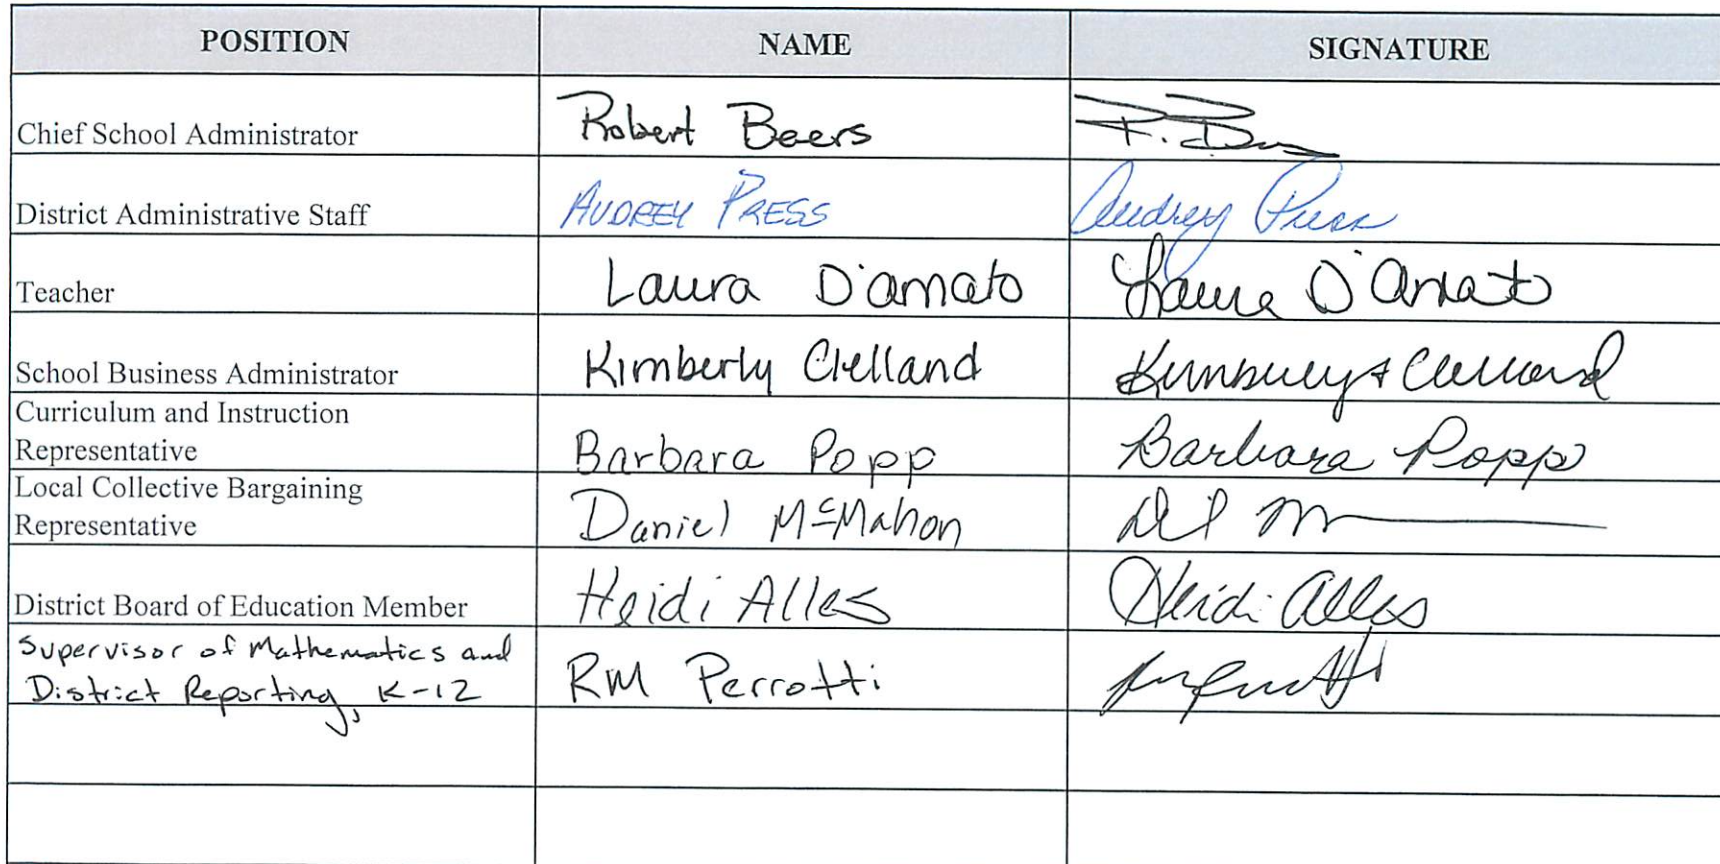 POSITION NAME SIGNATURE
Chief School Administrator Robert Beers R. B
District Administrative Staff AUDREY PRESS Audrey Press
Teacher Laura D'amato Laura D'Amato
School Business Administrator Kimberly Clelland Kimberly A Clelland
Curriculum and Instruction
Representative Barbara Popp Barbara Popp
Local Collective Bargaining
Representative Daniel McMahon
District Board of Education Member Heidi Alles Heidi Alles
Supervisor of Mathematics and
District Reporting, K-12 RM Perrotti